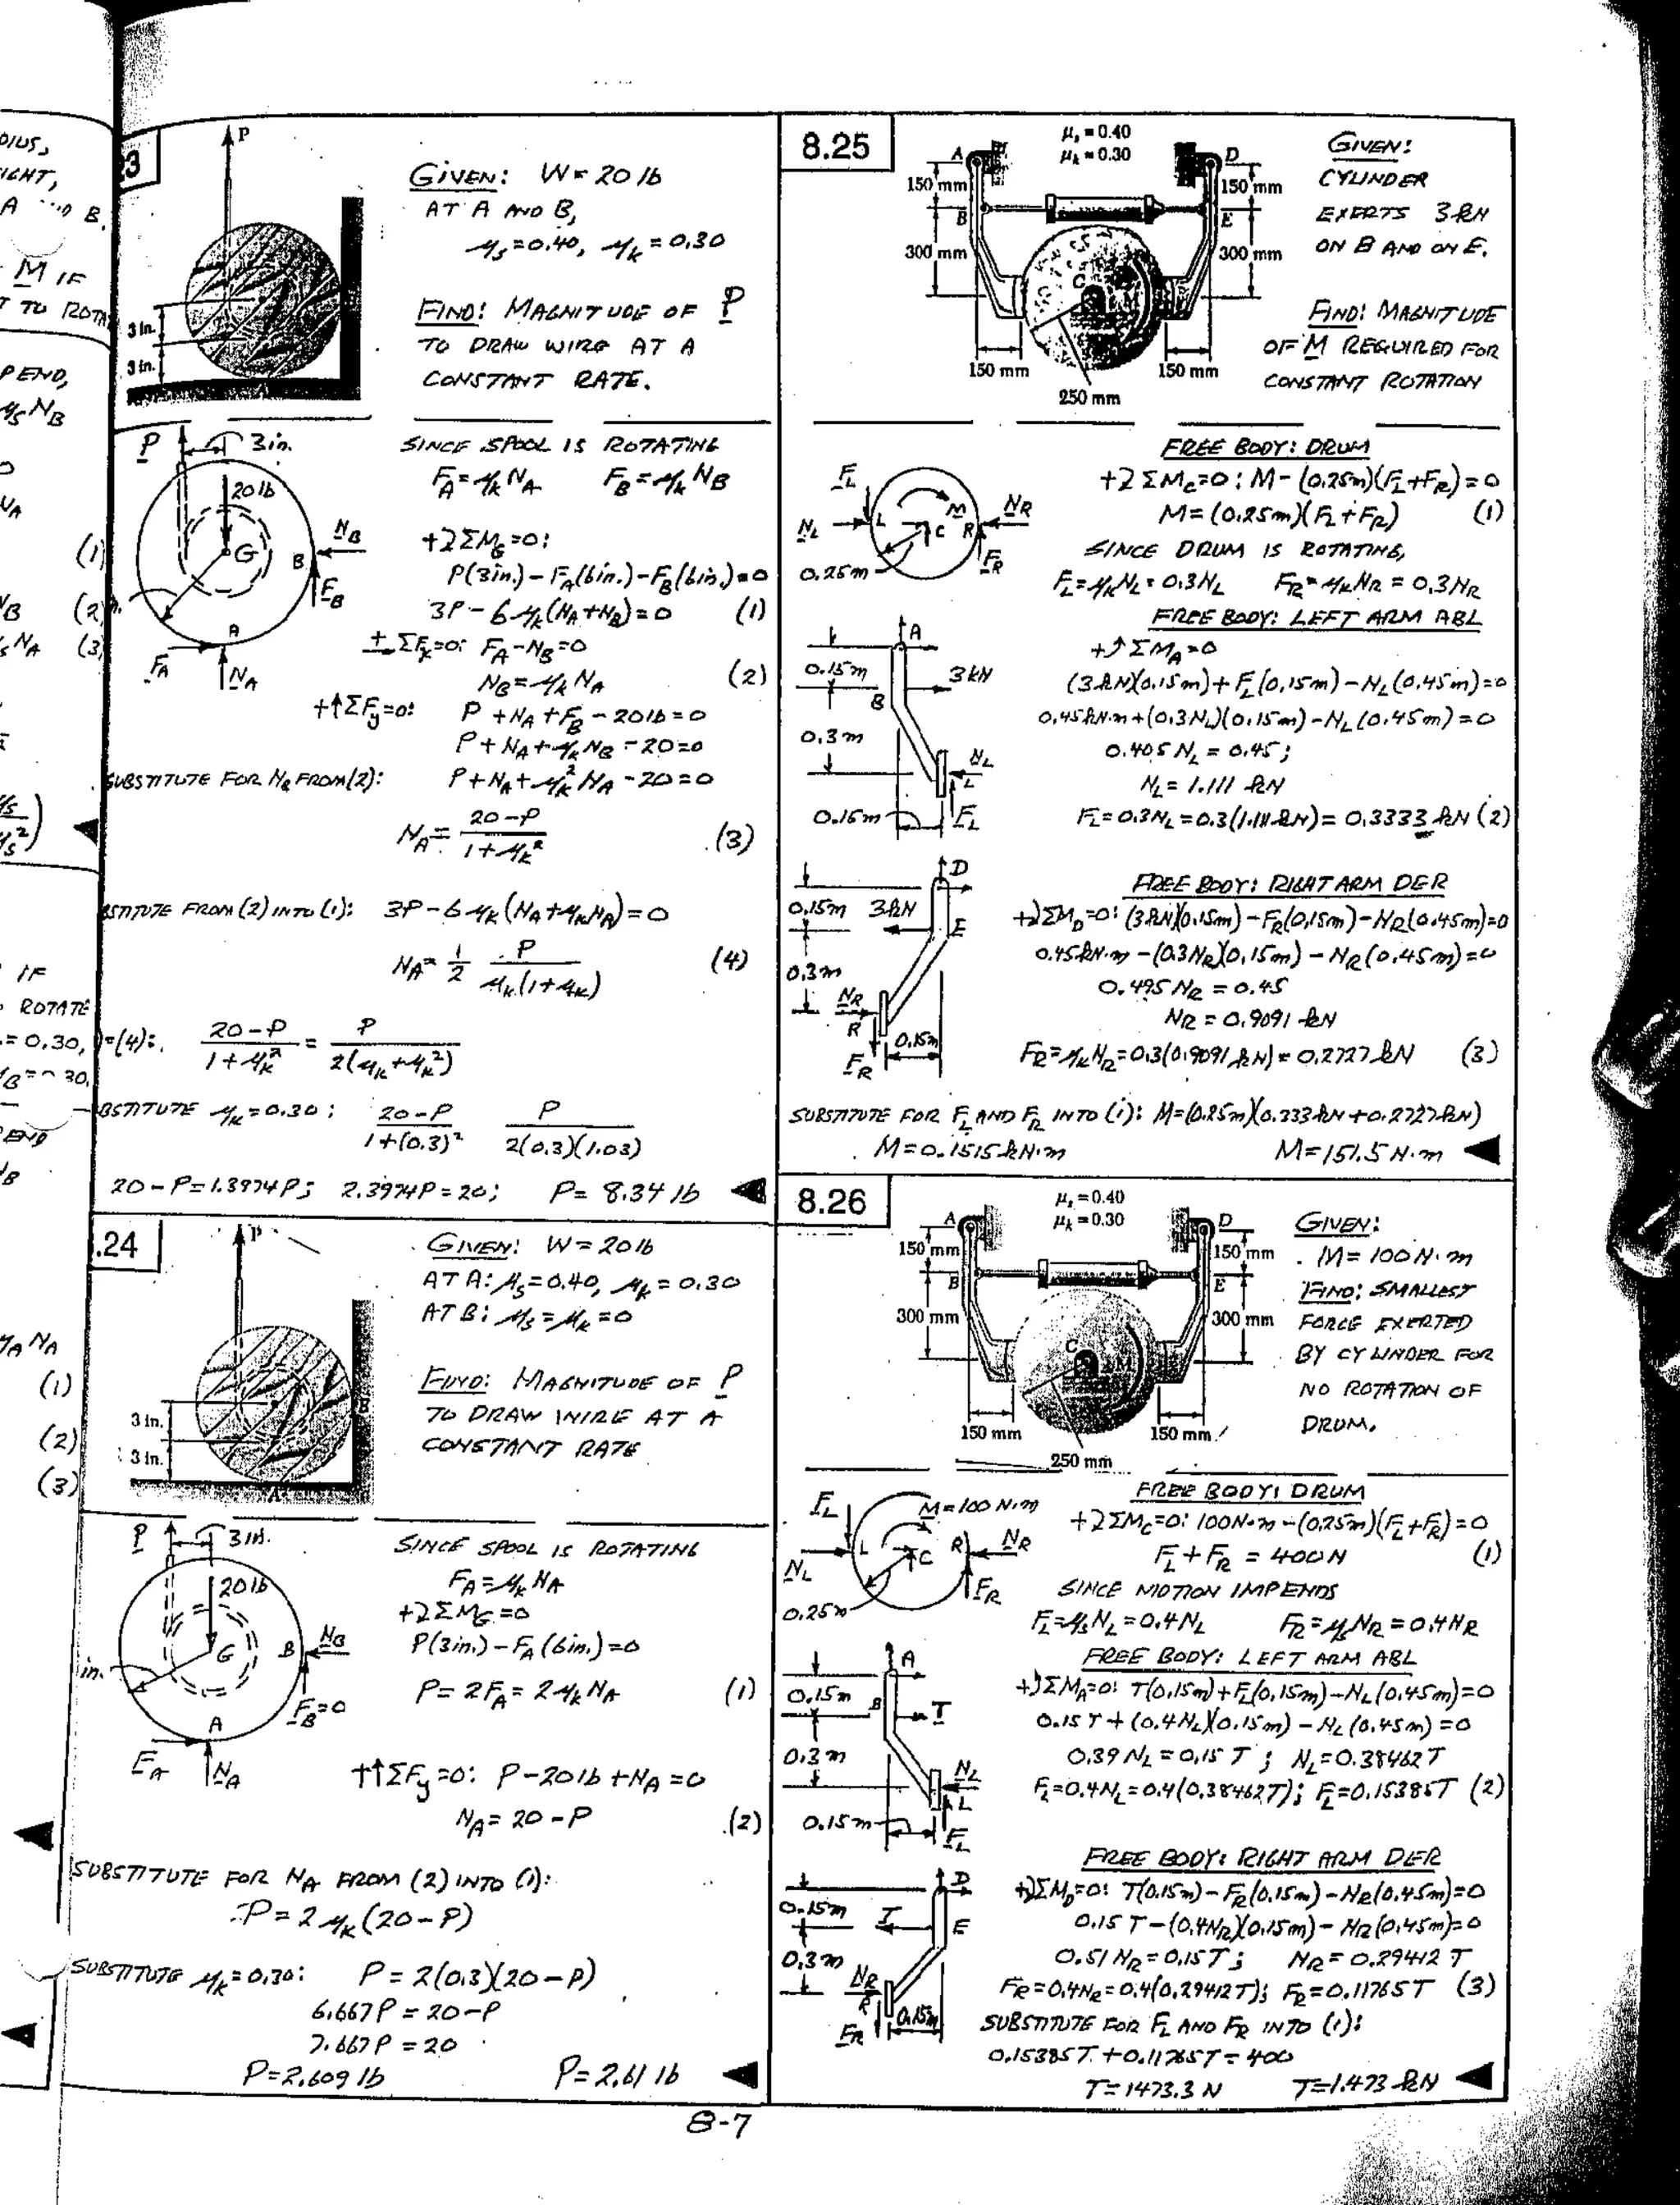 DIUS,
IGHT,
A AND B.
M IF
T TO ROTA
PEND,
μsNB
NA
(1)
NB (2)
sNA (3)
IF
ROTATE
= 0.30,
PEND
NA
(1)
(2)
(3)
3
P
3 in.
3 in.
GIVEN: W = 20 lb
AT A AND B,
μs = 0.40, μk = 0.30
FIND: MAGNITUDE OF P
TO DRAW WIRE AT A
CONSTANT RATE.
P 3 in.
20 lb
G
B
NB
FB
A
FA
NA
SINCE SPOOL IS ROTATING
FA = μkNA FB = μkNB
+↻ΣMG = 0:
P(3in.) - FA(6in.) - FB(6in.) = 0
3P - 6μk(NA+NB) = 0 (1)
+→ΣFx=0: FA - NB = 0
NB = μkNA (2)
+↑ΣFy=0: P + NA + FB - 20lb = 0
P + NA + μkNB - 20 = 0
SUBSTITUTE FOR NB FROM (2): P + NA + μk²NA - 20 = 0
NA = 20-P / 1+μk² (3)
BSTITUTE FROM (2) INTO (1): 3P - 6μk(NA + μkNA) = 0
NA = 1/2 P / μk(1+μk) (4)
=(4): 20-P / 1+μk² = P / 2(μk+μk²)
BSTITUTE μk = 0.30: 20-P / 1+(0.3)² P / 2(0.3)(1.03)
20-P = 1.3974P; 2.3974P = 20; P = 8.34 lb
.24
P
B
3 in.
3 in.
A
GIVEN: W = 20 lb
AT A: μs = 0.40, μk = 0.30
AT B: μs = μk = 0
FIND: MAGNITUDE OF P
TO DRAW WIRE AT A
CONSTANT RATE
P 3 in.
20 lb
G
B
NB
in.
FB = 0
A
FA
NA
SINCE SPOOL IS ROTATING
FA = μkNA
+↻ΣMG = 0
P(3in.) - FA(6in.) = 0
P = 2FA = 2μkNA (1)
+↑ΣFy = 0: P - 20lb + NA = 0
NA = 20 - P (2)
SUBSTITUTE FOR NA FROM (2) INTO (1):
P = 2μk(20-P)
SUBSTITUTE μk = 0.30: P = 2(0.3)(20-P)
6.667P = 20-P
7.667P = 20
P = 2.609 lb P = 2.61 lb
8.25
μs = 0.40
μk = 0.30
A D
150 mm 150 mm
B E
300 mm 300 mm
C M
150 mm 150 mm
250 mm
GIVEN:
CYLINDER
EXERTS 3 kN
ON B AND ON E.
FIND: MAGNITUDE
OF M REQUIRED FOR
CONSTANT ROTATION
FL
NL L C M R NR
FR
0.25m
FREE BODY: DRUM
+↻ΣMC=0: M - (0.25m)(FL+FR) = 0
M = (0.25m)(FL+FR) (1)
SINCE DRUM IS ROTATING,
FL = μkNL = 0.3NL FR = μkNR = 0.3NR
FREE BODY: LEFT ARM ABL
A
0.15m
3 kN
B
0.3m
NL
L
0.15m FL
+↺ΣMA = 0
(3kN)(0.15m) + FL(0.15m) - NL(0.45m) = 0
0.45kN·m + (0.3NL)(0.15m) - NL(0.45m) = 0
0.405 NL = 0.45;
NL = 1.111 kN
FL = 0.3NL = 0.3(1.111kN) = 0.3333 kN (2)
D
0.15m 3kN
E
0.3m
NR
R
0.15m
FR
FREE BODY: RIGHT ARM DER
+↻ΣMD=0: (3kN)(0.15m) - FR(0.15m) - NR(0.45m) = 0
0.45kN·m - (0.3NR)(0.15m) - NR(0.45m) = 0
0.495 NR = 0.45
NR = 0.9091 kN
FR = μkNR = 0.3(0.9091kN) = 0.2727 kN (3)
SUBSTITUTE FOR FL AND FR INTO (1): M = (0.25m)(0.333kN + 0.2727kN)
M = 0.1515kN·m M = 151.5 N·m
8.26
μs = 0.40
μk = 0.30
A D
150 mm 150 mm
B E
300 mm 300 mm
C M
150 mm 150 mm
250 mm
GIVEN:
M = 100 N·m
FIND: SMALLEST
FORCE EXERTED
BY CYLINDER FOR
NO ROTATION OF
DRUM.
FL M = 100 N·m
NL L C R NR
FR
0.25m
FREE BODY: DRUM
+↻ΣMC=0: 100N·m - (0.25m)(FL+FR) = 0
FL + FR = 400N (1)
SINCE MOTION IMPENDS
FL = μsNL = 0.4NL FR = μsNR = 0.4NR
FREE BODY: LEFT ARM ABL
A
0.15m
B T
0.3m
NL
L
0.15m FL
+↺ΣMA=0: T(0.15m) + FL(0.15m) - NL(0.45m) = 0
0.15T + (0.4NL)(0.15m) - NL(0.45m) = 0
0.39NL = 0.15T; NL = 0.38462T
FL = 0.4NL = 0.4(0.38462T); FL = 0.15385T (2)
D
0.15m T
E
0.3m
NR
R
0.15m
FR
FREE BODY: RIGHT ARM DER
+↻ΣMD=0: T(0.15m) - FR(0.15m) - NR(0.45m) = 0
0.15T - (0.4NR)(0.15m) - NR(0.45m) = 0
0.51NR = 0.15T; NR = 0.29412T
FR = 0.4NR = 0.4(0.29412T); FR = 0.11765T (3)
SUBSTITUTE FOR FL AND FR INTO (1):
0.15385T + 0.11765T = 400
T = 1473.3 N T = 1.473 kN
8-7